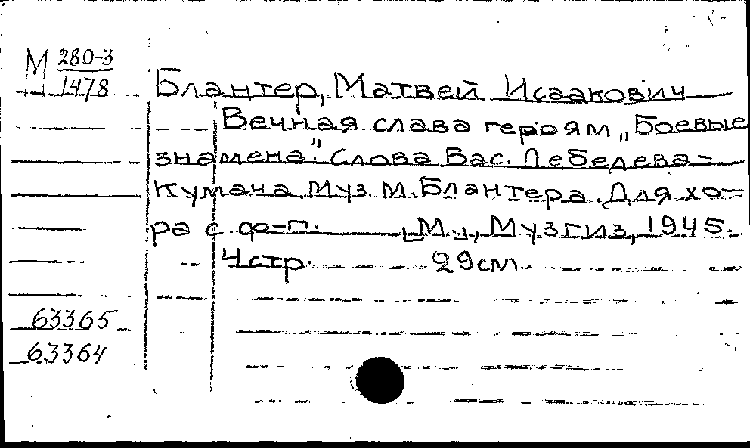 М 280-3
1478
Блантер, Матвей Исаакович
Вечная слава героям „Боевые
знамена". Слова Вас. Лебедева-
Кумача Муз. М. Блантера. Для хо-
ра с ф-п. М., Музгиз, 1945.
4 стр. 29 см.
63365
63364